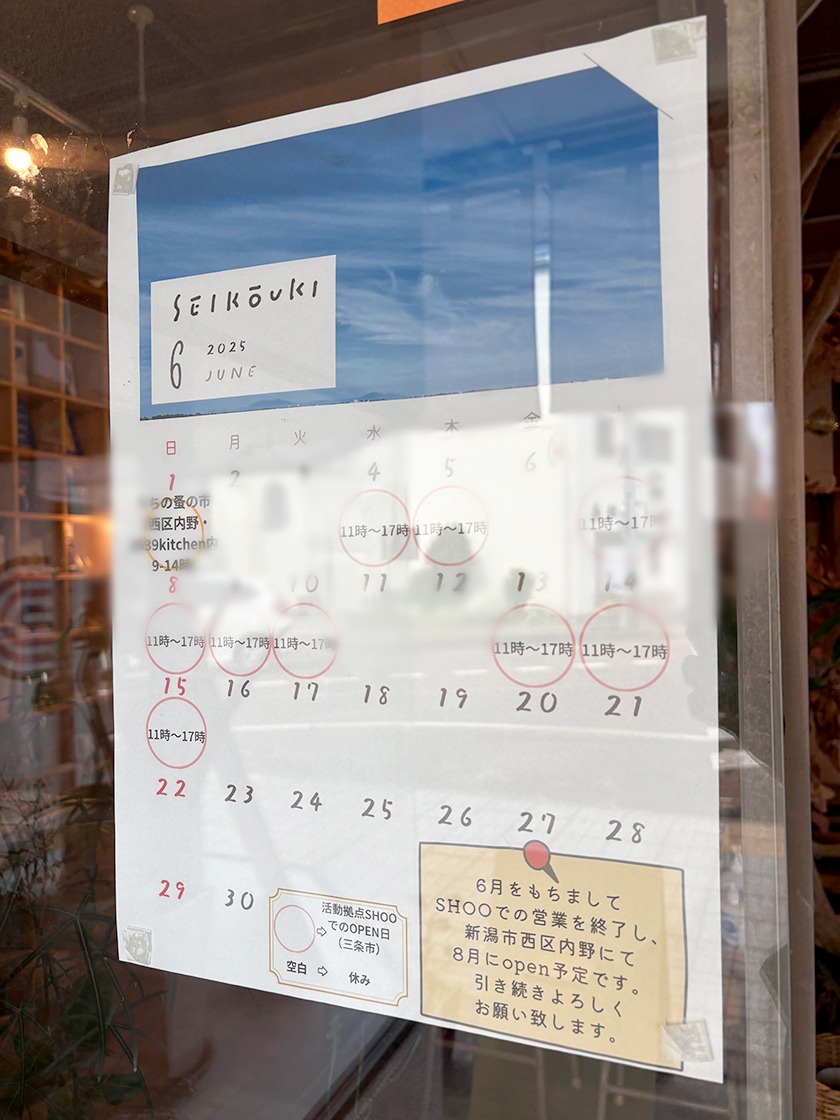 SEIKŌUKI
6 2025
JUNE
日 月 火 水 木 金
1 2 4 5 6
ちの蚤の市
西区内野・
39kitchen内
9-14時
11時〜17時 11時〜17時 11時〜17時
8 10 11 12 13 14
11時〜17時 11時〜17時 11時〜17時 11時〜17時 11時〜17時
15 16 17 18 19 20 21
11時〜17時
22 23 24 25 26 27 28
29 30
活動拠点SHOO
⇨ でのOPEN日
（三条市）
空白 ⇨ 休み
6月をもちまして
SHOOでの営業を終了し、
新潟市西区内野にて
8月にopen予定です。
引き続きよろしく
お願い致します。